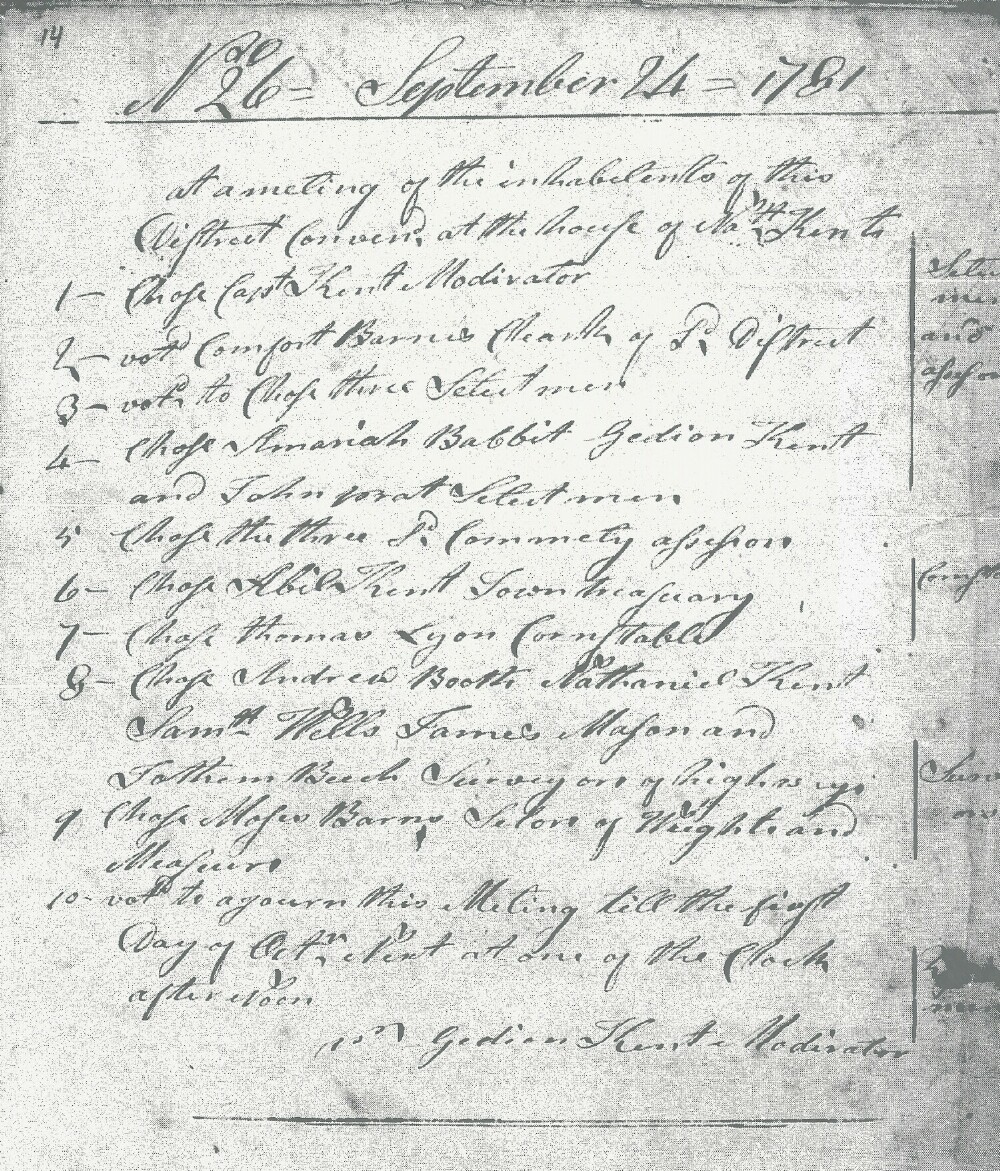 14
No 26 = September 24 = 1781
at a meting of the inhabelents of this
District Conven,d at the house of Nath Kents
1 — Chose Capt Kent Modirator
2 — votd Comfort Barnes Cleark of Sd District
3 — votd to Chose three Select men
4 — Chose Amariah Babbit Gedion Kent
and John prat Select men
5 Chose the three Sd Commety assessors
6 — Chose Abil Kent Town treasuary
7 — Chose thomas Lyon Cornstable
8 — Chose Andrew Booth Nathaniel Kent
Samll Wells James Mason and
Jothem Beech Surveyors of highways
9 Chose Moses Barns Selors of Weights and
Measurs
10 - votd to agourn this Meting till the first
Day of Octr Next at one of the Clock
after Noon
pr Gedion Kent Modirator
Selec
men
and
assessors
Const
Surv
ors